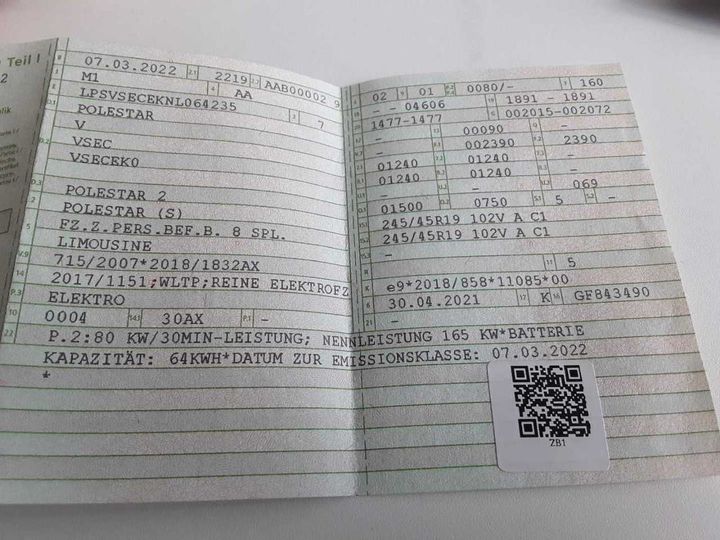 Teil I
07.03.2022 2.1 2219 2.2 AAB00002 9
M1 AA
LPSVSECEKNL064235 7
POLESTAR
V
VSEC
VSECEK0
POLESTAR 2
POLESTAR (S)
FZ.Z.PERS.BEF.B. 8 SPL.
LIMOUSINE
715/2007*2018/1832AX
2017/1151;WLTP;REINE ELEKTROFZ
ELEKTRO
0004 30AX -
02 01 0080/- 160
- - 04606 1891 - 1891
1477-1477 002015-002072
- 00090 -
- 002390 2390
01240 01240 -
01240 01240 -
- - 069
01500 0750 5 -
245/45R19 102V A C1
245/45R19 102V A C1
-
- 5
e9*2018/858*11085*00
30.04.2021 17 K 16 GF843490
21 -
22 P.2:80 KW/30MIN-LEISTUNG; NENNLEISTUNG 165 KW*BATTERIE
KAPAZITÄT: 64KWH*DATUM ZUR EMISSIONSKLASSE: 07.03.2022
*
ZB1